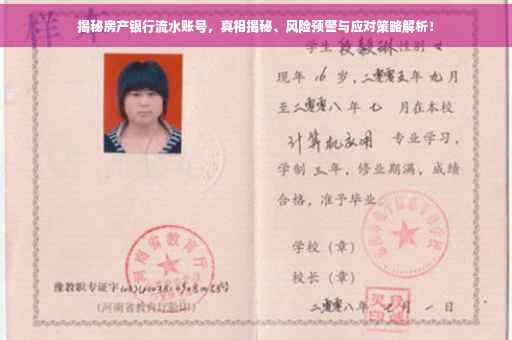 揭秘房产银行流水账号，真相揭秘、风险预警与应对策略解析！
样本
学生 段毅琳 性别 女
现年 16 岁，二零零五年 九 月
至二零零八年 七 月在本校
计算机应用 专业学习，
学制 三 年，修业期满，成绩
合格，准予毕业。
学校（章）
校长（章）
二零零八年 七 月 一 日
河南省教育厅
豫教职专证字
（河南省教育厅验印）